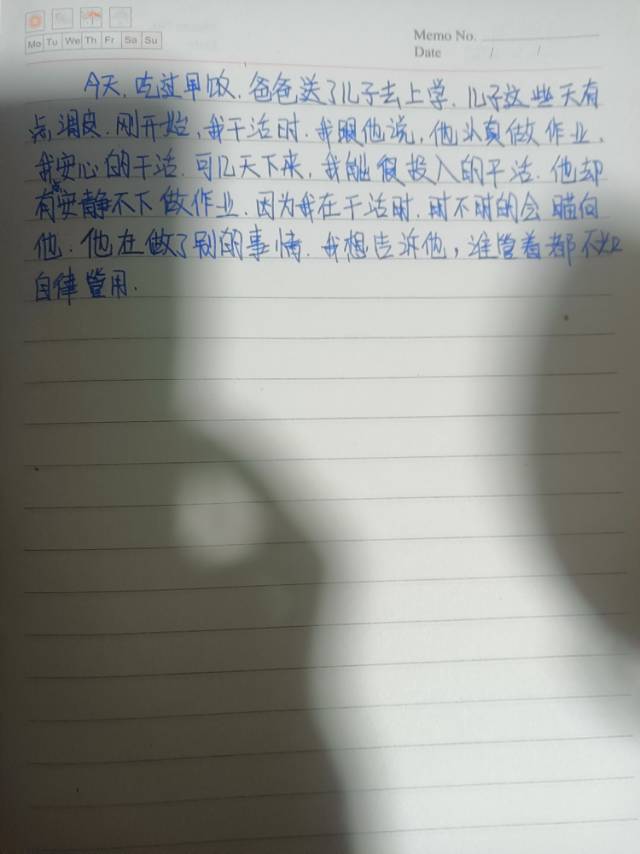 Memo No.
Mo Tu We Th Fr Sa Su
Date / /
今天.吃过早饭.爸爸送了儿子去上学.儿子这些天有
点调皮.刚开始,我干活时.我跟他说,他认真做作业.
我安心的干活.可几天下来,我能很投入的干活.他却
有安静不下做作业.因为我在干活时.时不时的会瞄向
他.他在做了别的事情.我想告诉他,谁管着都不如
自律管用.